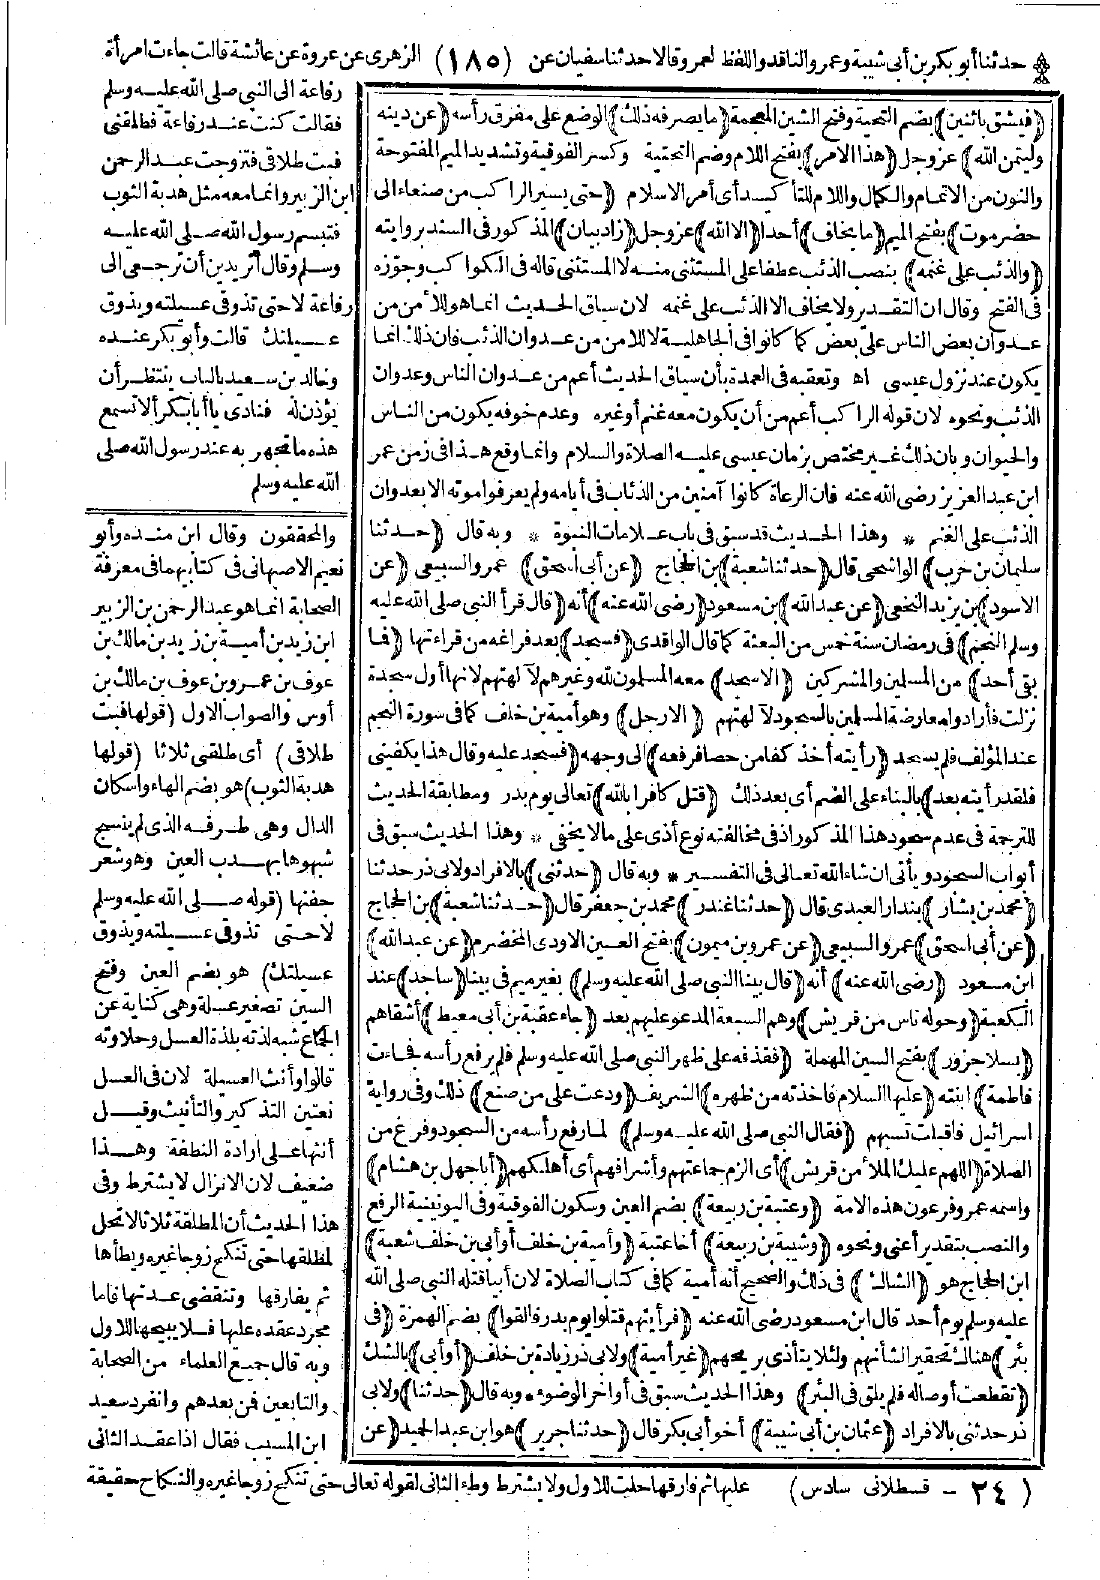 حدثنا أبو بكر بن أبى شيبة وعمرو الناقد واللفظ لعمرو قالا حدثنا سفيان عن (١٨٥) الزهرى عن عروة عن عائشة قالت جاءت امرأة
رفاعة الى النبي صلى الله عليه وسلم
فقالت كنت عند رفاعة فطلقنى
فبت طلاقى فتزوجت عبد الرحمن
ابن الزبير وانما معه مثل هدبة الثوب
فتبسم رسول الله صلى الله عليه
وسلم وقال أتريدين أن ترجعى الى
رفاعة لا حتى تذوقى عسيلته ويذوق
عسيلتك قالت وأبو بكر عنده
وخالد بن سعيد بالباب ينتظر أن
يؤذن له فنادى يا أبا بكر ألا تسمع
هذه ما تجهر به عند رسول الله صلى
الله عليه وسلم
(فيشق باثنين) بضم التحتية وفتح الشين المعجمة (ما يصرفه ذلك) الوضع على مفرق رأسه (عن دينه
وليتمن الله) عز وجل (هذا الامر) بفتح اللام وضم التحتية وكسر الفوقية وتشديد الميم المفتوحة
والنون من الاتمام والكمال واللام للتأكيد أى أمر الاسلام (حتى يسير الراكب من صنعاء الى
حضرموت) بفتح الميم (ما يخاف) أحدا (الا الله) عز وجل (زاد بيان) المذكور فى السند بروايته
(والذئب على غنمه) بنصب الذئب عطفا على المستثنى منه لا المستثنى قاله فى الكواكب وجوّزه
فى الفتح وقال ان التقدير ولا يخاف الا الذئب على غنمه لان سياق الحديث انما هو للأمن من
عدوان بعض الناس على بعض كما كانوا فى الجاهلية لا للامن من عدوان الذئب فان ذلك انما
يكون عند نزول عيسى اه وتعقبه فى العمدة بأن سياق الحديث أعم من عدوان الناس وعدوان
الذئب ونحوه لان قوله الراكب أعم من أن يكون معه غنم أو غيره وعدم خوفه يكون من الناس
والحيوان وبان ذلك غير مختص بزمان عيسى عليه الصلاة والسلام وانما وقع هذا فى زمن عمر
ابن عبد العزيز رضى الله عنه فان الرعاة كانوا آمنين من الذئاب فى أيامه ولم يعرفوا موته الا بعدوان
الذئب على الغنم * وهذا الحديث قد سبق فى باب علامات النبوة * وبه قال (حدثنا
سليمان بن حرب) الواشحى قال (حدثنا شعبة) بن الحجاج (عن أبى اسحق) عمرو السبيعى (عن
الاسود) بن يزيد النخعى (عن عبد الله) بن مسعود (رضى الله عنه) أنه (قال قرأ النبي صلى الله عليه
وسلم النجم) فى رمضان سنة خمس من البعثة كما قال الواقدى (فسجد) بعد فراغه من قراءتها (فما
بقى أحد) من المسلمين والمشركين (الا سجد) معه المسلمون لله وغيرهم لآلهتهم لانها أول سجدة
نزلت فأرادوا معارضة المسلمين بالسجود لآلهتهم (الا رجل) وهو أمية بن خلف كما فى سورة النجم
عند المؤلف فلم يسجد (رأيته أخذ كفا من حصا فرفعه) الى وجهه (فسجد عليه وقال هذا يكفينى
فلقد رأيته بعد) بالبناء على الضم أى بعد ذلك (قتل كافرا بالله) تعالى يوم بدر ومطابقة الحديث
للترجمة فى عدم سجود هذا المذكور اذ فى مخالفته نوع أذى على ما لا يخفى * وهذا الحديث سبق فى
أبواب السجود ويأتى ان شاء الله تعالى فى التفسير * وبه قال (حدثنى) بالافراد ولابى ذر حدثنا
(محمد بن بشار) بندار العبدى قال (حدثنا غندر) محمد بن جعفر قال (حدثنا شعبة) بن الحجاج
(عن أبى اسحق) عمرو السبيعى (عن عمرو بن ميمون) بفتح العين الاودى المخضرم (عن عبد الله)
ابن مسعود (رضى الله عنه) أنه (قال بينا النبي صلى الله عليه وسلم) بغير ميم فى بينا (ساجد) عند
الكعبة (وحوله ناس من قريش) وهم السبعة المدعو عليهم بعد (جاء عقبة بن أبى معيط) أشقاهم
(بسلا جزور) بفتح السين المهملة (فقذفه على ظهر النبي صلى الله عليه وسلم فلم يرفع رأسه فجاءت
فاطمة) ابنته (عليها السلام فاخذته من ظهره) الشريف (ودعت على من صنع) ذلك وفى رواية
اسرائيل فاقبلت تسبهم (فقال النبي صلى الله عليه وسلم) لما رفع رأسه من السجود وفرغ من
الصلاة (اللهم عليك الملأ من قريش) أى الزم جماعتهم وأشرافهم أى أهلكهم (أبا جهل بن هشام)
واسمه عمرو فرعون هذه الامة (وعتبة بن ربيعة) بضم العين وسكون الفوقية وفى اليونينية الرفع
والنصب بتقدير أعنى ونحوه (وشيبة بن ربيعة) أخا عتبة (وأمية بن خلف أو أبى بن خلف شعبة)
ابن الحجاج هو (الشاك) فى ذلك والصحيح أنه أمية كما فى كتاب الصلاة لان أبيا قتله النبي صلى الله
عليه وسلم يوم أحد قال ابن مسعود رضى الله عنه (فرأيتهم قتلوا يوم بدر فالقوا) بضم الهمزة (فى
بئر) هناك تحقيرا لشأنهم ولئلا يتأذى بريحهم (غير أمية) ولابى ذر زيادة بن خلف (أو أبى) بالشك
(تقطعت أوصاله فلم يلق فى البئر) وهذا الحديث سبق فى أواخر الوضوء * وبه قال (حدثنا) ولابى
ذر حدثنى بالافراد (عثمان بن أبى شيبة) أخو أبى بكر قال (حدثنا جرير) هو ابن عبد الحميد (عن
والمحققون وقال ابن منده وأبو
نعيم الاصبهانى فى كتابيهما فى معرفة
الصحابة انما هو عبد الرحمن بن الزبير
ابن زيد بن أمية بن زيد بن مالك بن
عوف بن عمرو بن عوف بن مالك بن
أوس والصواب الاول (قولها فبت
طلاقى) أى طلقنى ثلاثا (قولها
هدبة الثوب) هو بضم الهاء واسكان
الدال وهى طرفه الذى لم ينسج
شبهوها بهدب العين وهو شعر
جفنها (قوله صلى الله عليه وسلم
لا حتى تذوقى عسيلته ويذوق
عسيلتك) هو بضم العين وفتح
السين تصغير عسلة وهى كناية عن
الجماع شبه لذته بلذة العسل وحلاوته
قالوا وأنث العسيلة لان فى العسل
نعتين التذكير والتأنيث وقيل
أنثها على ارادة النطفة وهذا
ضعيف لان الانزال لا يشترط وفى
هذا الحديث أن المطلقة ثلاثا لا تحل
لمطلقها حتى تنكح زوجا غيره ويطأها
ثم يفارقها وتنقضى عدتها فاما
مجرد عقده عليها فلا يبيحها للاول
وبه قال جميع العلماء من الصحابة
والتابعين فمن بعدهم وانفرد سعيد
ابن المسيب فقال اذا عقد الثانى
(٢٤ - قسطلانى سادس) عليها ثم فارقها حلت للاول ولا يشترط وطء الثانى لقوله تعالى حتى تنكح زوجا غيره والنكاح حقيقة